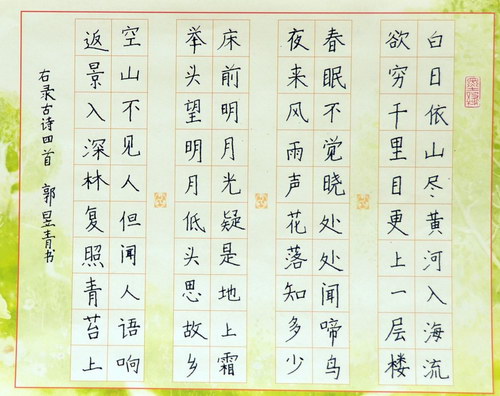 白日依山尽黄河入海流
欲穷千里目更上一层楼
春眠不觉晓处处闻啼鸟
夜来风雨声花落知多少
床前明月光疑是地上霜
举头望明月低头思故乡
空山不见人但闻人语响
返景入深林复照青苔上
右录古诗四首 郭昱青书